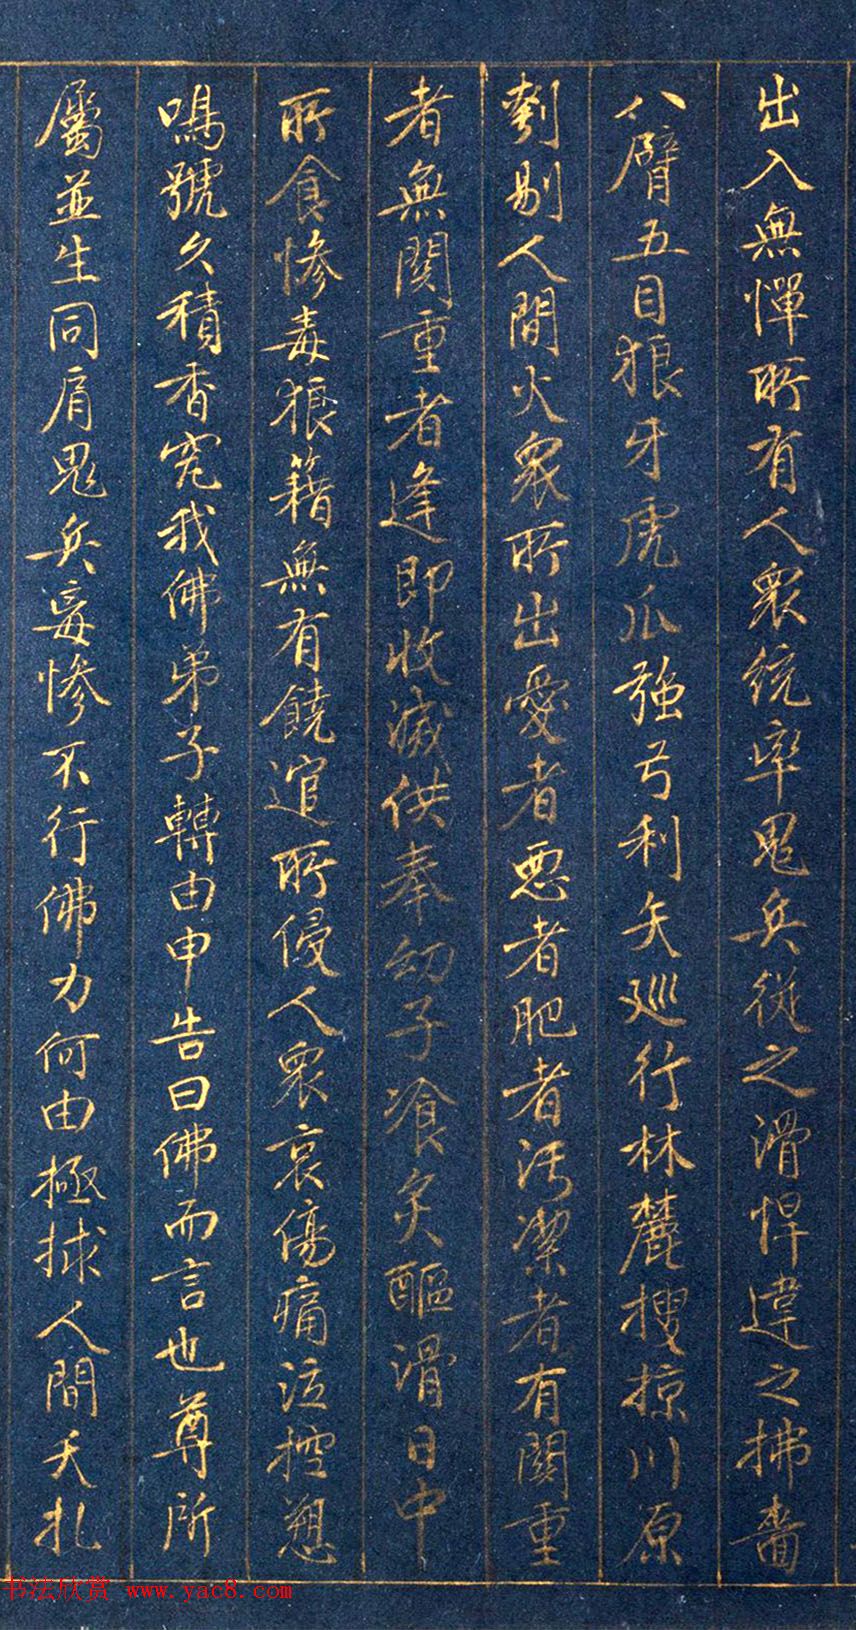 出入無憚所有人眾統率鬼兵從之滑悍違之拂嗇
八臂五目狼牙虎爪強弓利矢巡行林麓搜掠川原
剗剔人間火眾所出愛者惡者肥者污潔者有關重
者無関重者逢即收滅供奉幼子飡炙醧滑日中
所食慘毒狼籍無有饒逭所侵人眾哀傷痛泣控愬
鳴號久積香究我佛弟子轉由申告曰佛而言也尊所
屬並生同肩鬼兵毒慘不行佛力何由極捄人間夭札
书法欣赏 www.yac8.com